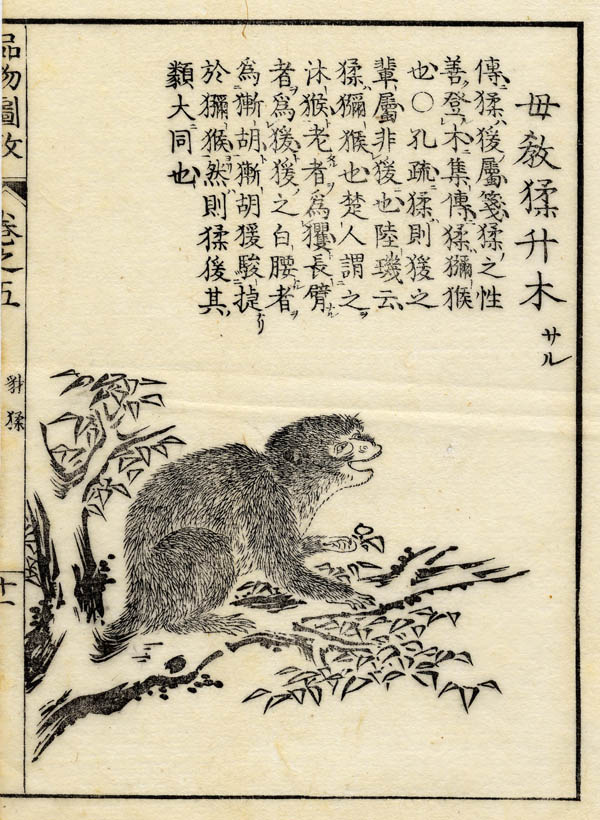 毋敎猱升木
サル
傳猱猨屬箋猱之性
善登木集傳猱獼猴
也〇孔疏猱則猨之
輩屬非猨也陸璣云
猱獼猴也楚人謂之
沐猴老者為玃長臂
者為猨猨之白腰者
為獑胡獑胡猨駿捷
於獼猴然則猱猨其
類大同也
品物圖攷
卷之五
豺 猱
十一